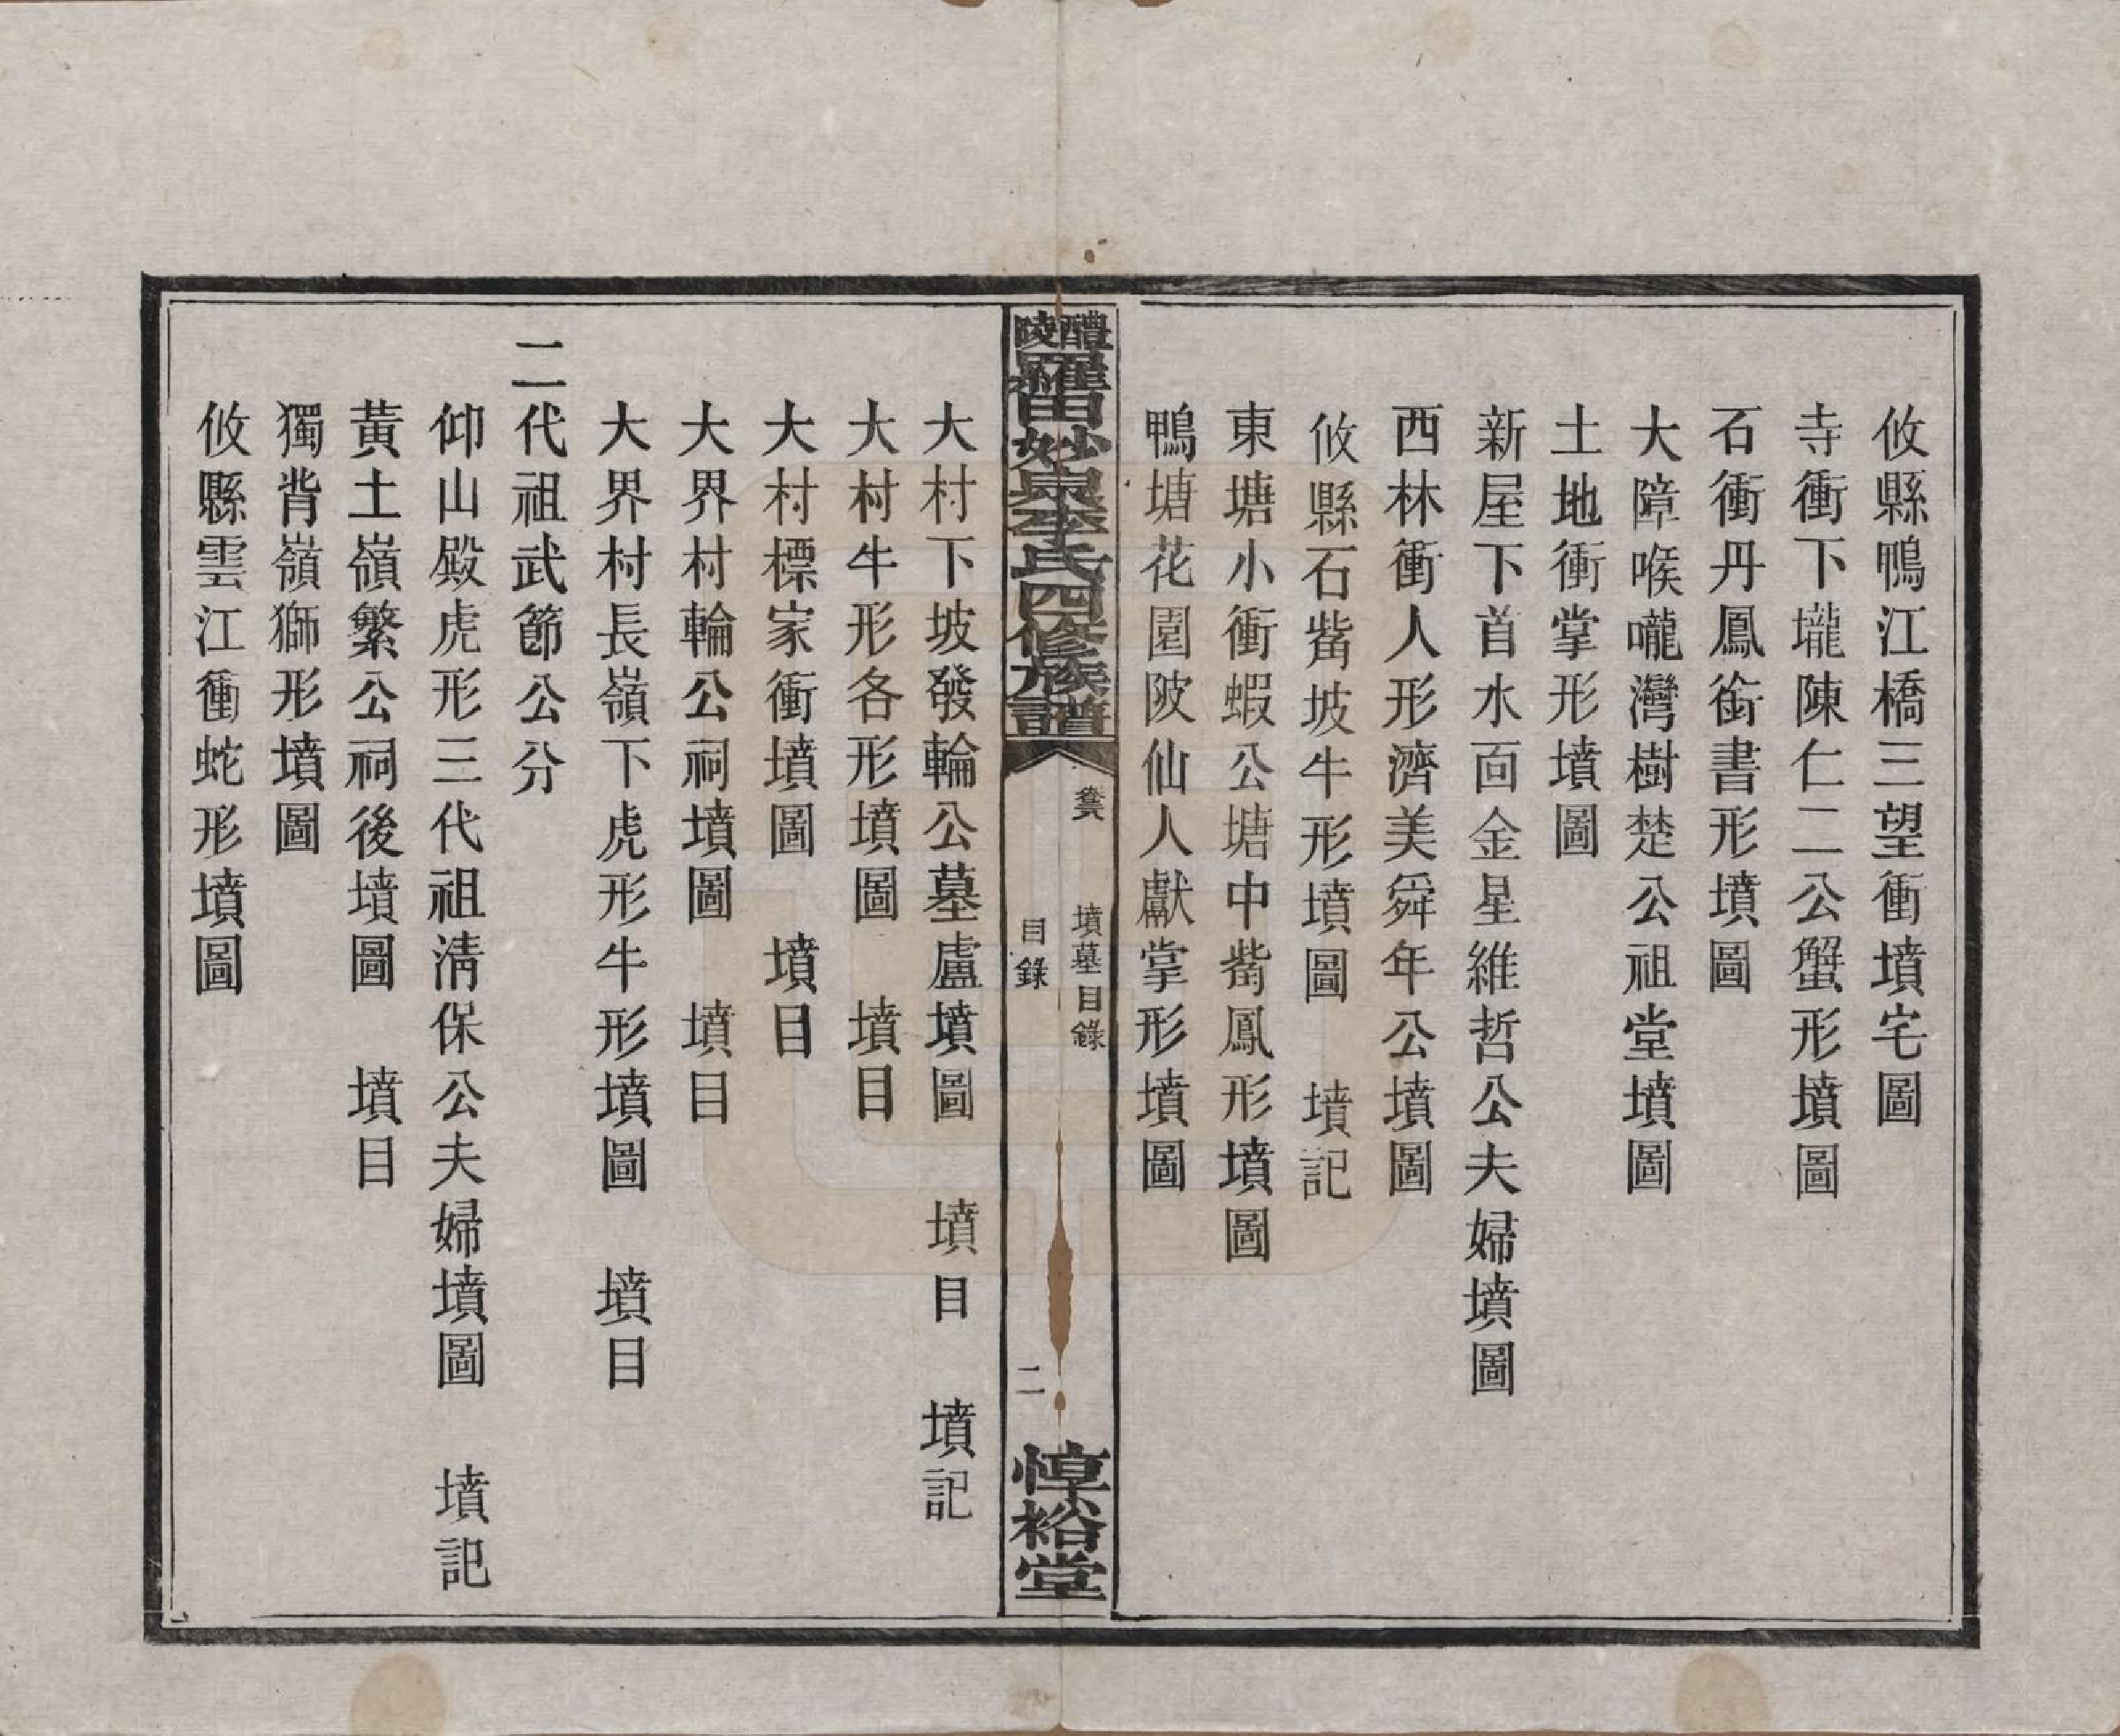 攸縣鴨江橋三望衝墳宅圖
寺衝下壠陳仁二公蟹形墳圖
石衝丹鳳銜書形墳圖
大障喉嚨灣樹楚公祖堂墳圖
土地衝掌形墳圖
新屋下首水面金星維哲公夫婦墳圖
西林衝人形濟美舜年公墳圖
攸縣石觜坡牛形墳圖　墳記
東塘小衝蝦公塘中觜鳳形墳圖
鴨塘花園陂仙人獻掌形墳圖
醴陵羅田妙泉李氏四修族譜
墳墓目錄
目錄
二
惇裕堂
大村下坡發輪公墓廬墳圖　墳目　墳記
大村牛形各形墳圖　墳目
大村標家衝墳圖　墳目
大界村輪公祠墳圖　墳目
大界村長嶺下虎形牛形墳圖　墳目
二代祖武節公分
仰山殿虎形三代祖淸保公夫婦墳圖　墳記
黃土嶺繁公祠後墳圖　墳目
獨背嶺獅形墳圖
攸縣雲江衝蛇形墳圖